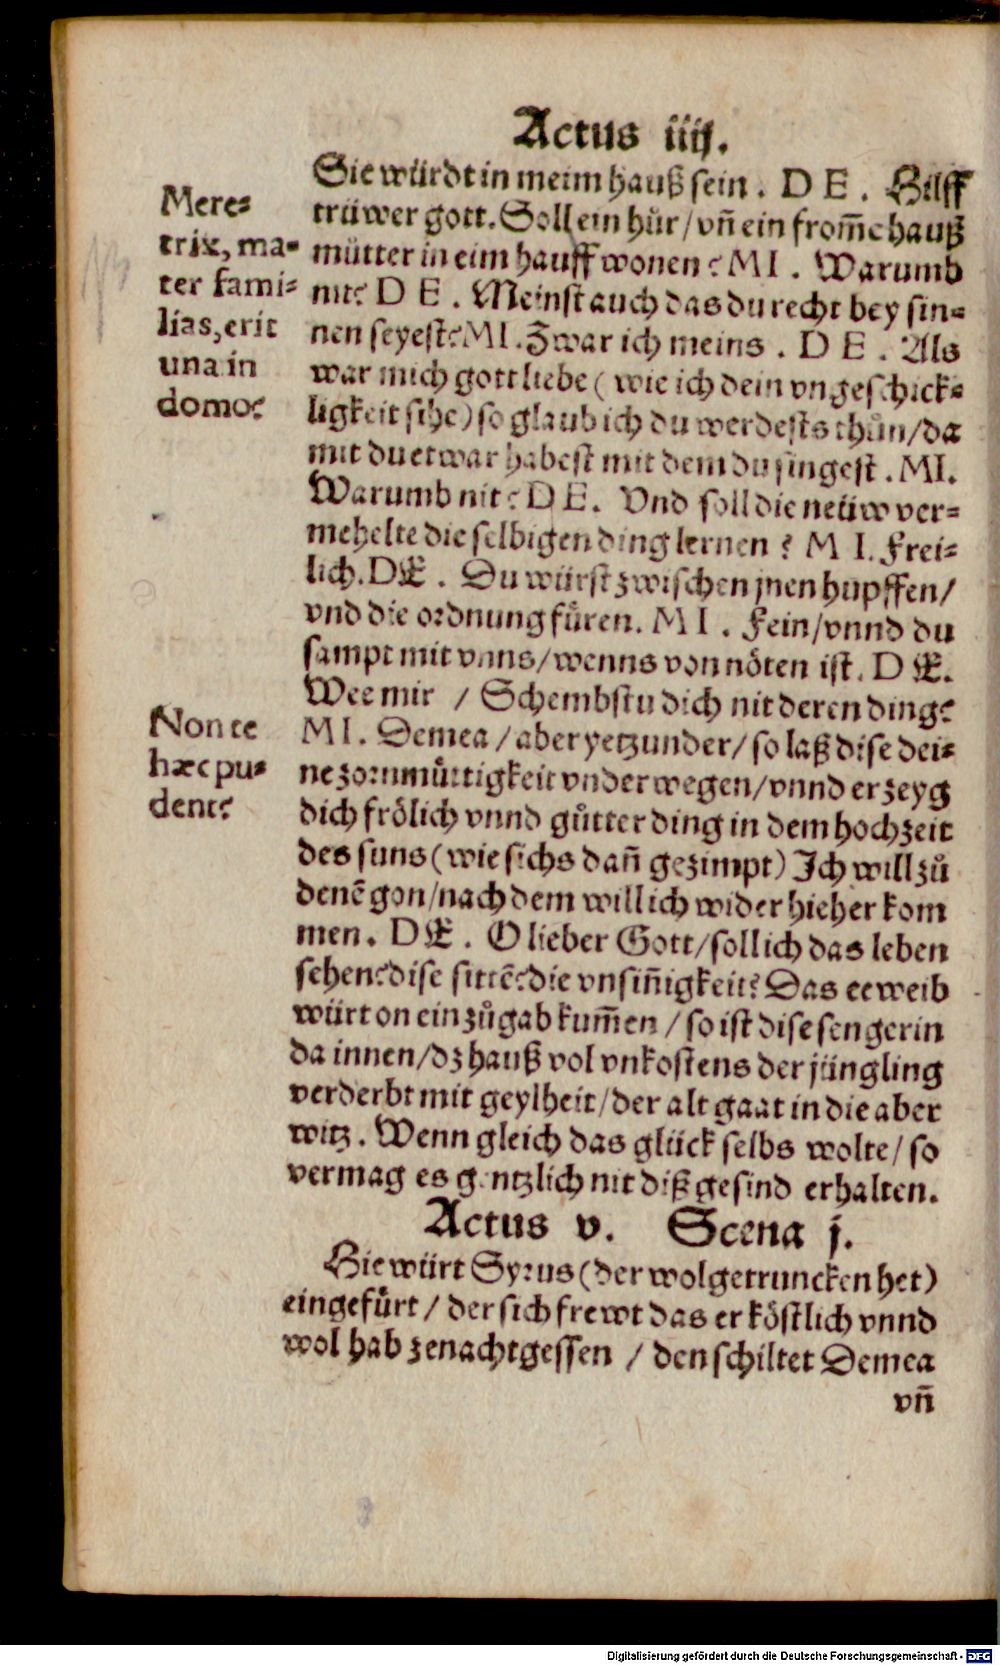 Actus iiij.
Sie würdt in meim hauß sein. DE. Hilff
trüwer gott. Soll ein hůr/vn̄ ein from̄e hauß
můtter in eim hauff wonen? MI. Warumb
nit? DE. Meinst auch das du recht bey sin⸗
nen seyest? MI. Zwar ich meins. DE. Als
war mich gott liebe (wie ich dein vngeschick⸗
ligkeit sihe) so glaub ich du werdests thůn/da
mit du etwar habest mit dem du singest. MI.
Warumb nit? DE. Vnd soll die neüw ver⸗
mehelte die selbigen ding lernen? MI. Frei⸗
lich. DE. Du würst zwischen jnen hupffen/
vnd die ordnung fůren. MI. Fein/vnnd du
sampt mit vnns/wenns von nöten ist. DE.
Wee mir / Schembstu dich nit deren ding?
MI. Demea/aber yetzunder/so laß dise dei⸗
ne zornmůttigkeit vnderwegen/vnnd erzeyg
dich frölich vnnd gůtter ding in dem hochzeit
des suns (wie sichs dan̄ gezimpt) Ich will zů
denē gon/nach dem will ich wider hieher kom
men. DE. O lieber Gott/soll ich das leben
sehen? dise sittē? die vnsin̄igkeit? Das eeweib
würt on ein zůgab kum̄en/so ist dise sengerin
da innen/dz hauß vol vnkostens der jüngling
verderbt mit geylheit/der alt gaat in die aber
witz. Wenn gleich das glück selbs wolte/so
vermag es gentzlich nit diß gesind erhalten.
Mere⸗
trix, ma⸗
ter fami⸗
lias, erit
una in
domo?
Non te
hæc pu⸗
dent?
Actus v. Scena j.
Hie würt Syrus (der wol getruncken het)
eingefůrt/der sich frewt das er köstlich vnnd
wol hab zenachtgessen/den schiltet Demea
vn̄
Digitalisierung gefördert durch die Deutsche Forschungsgemeinschaft - DFG